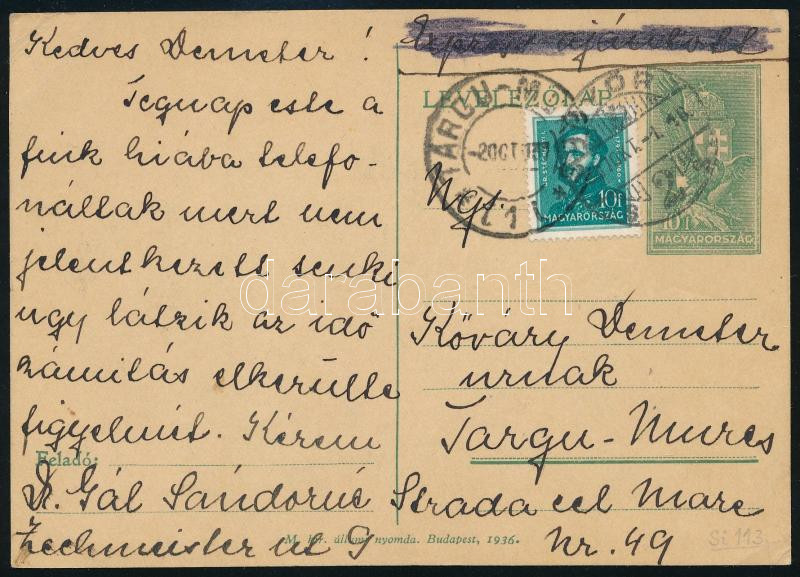 Kedves Demeter!
Tegnap este a
fiuk hiába telefo-
náltak mert nem
jelentkezett senki
ugy látzik az idő
számitás elkerülte
figyelmét. Kérem
Feladó:
Dr. Gál Sándorné
Zechmeister ut 9
Expressz ajánlott
LEVELEZŐLAP
10f
MAGYARORSZÁG
10f
MAGYARORSZÁG
-2OCT 939
Ngs.
Kőváry Demeter
urnak
Targu-Mures
Strada cel Mare
Nr. 49
M. kir. állami nyomda. Budapest, 1936.
Si 113
darabanth